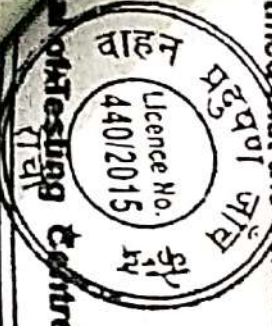 वाहन प्रदुषण जाँच
Licence No.
440/2015
of Testing Centre